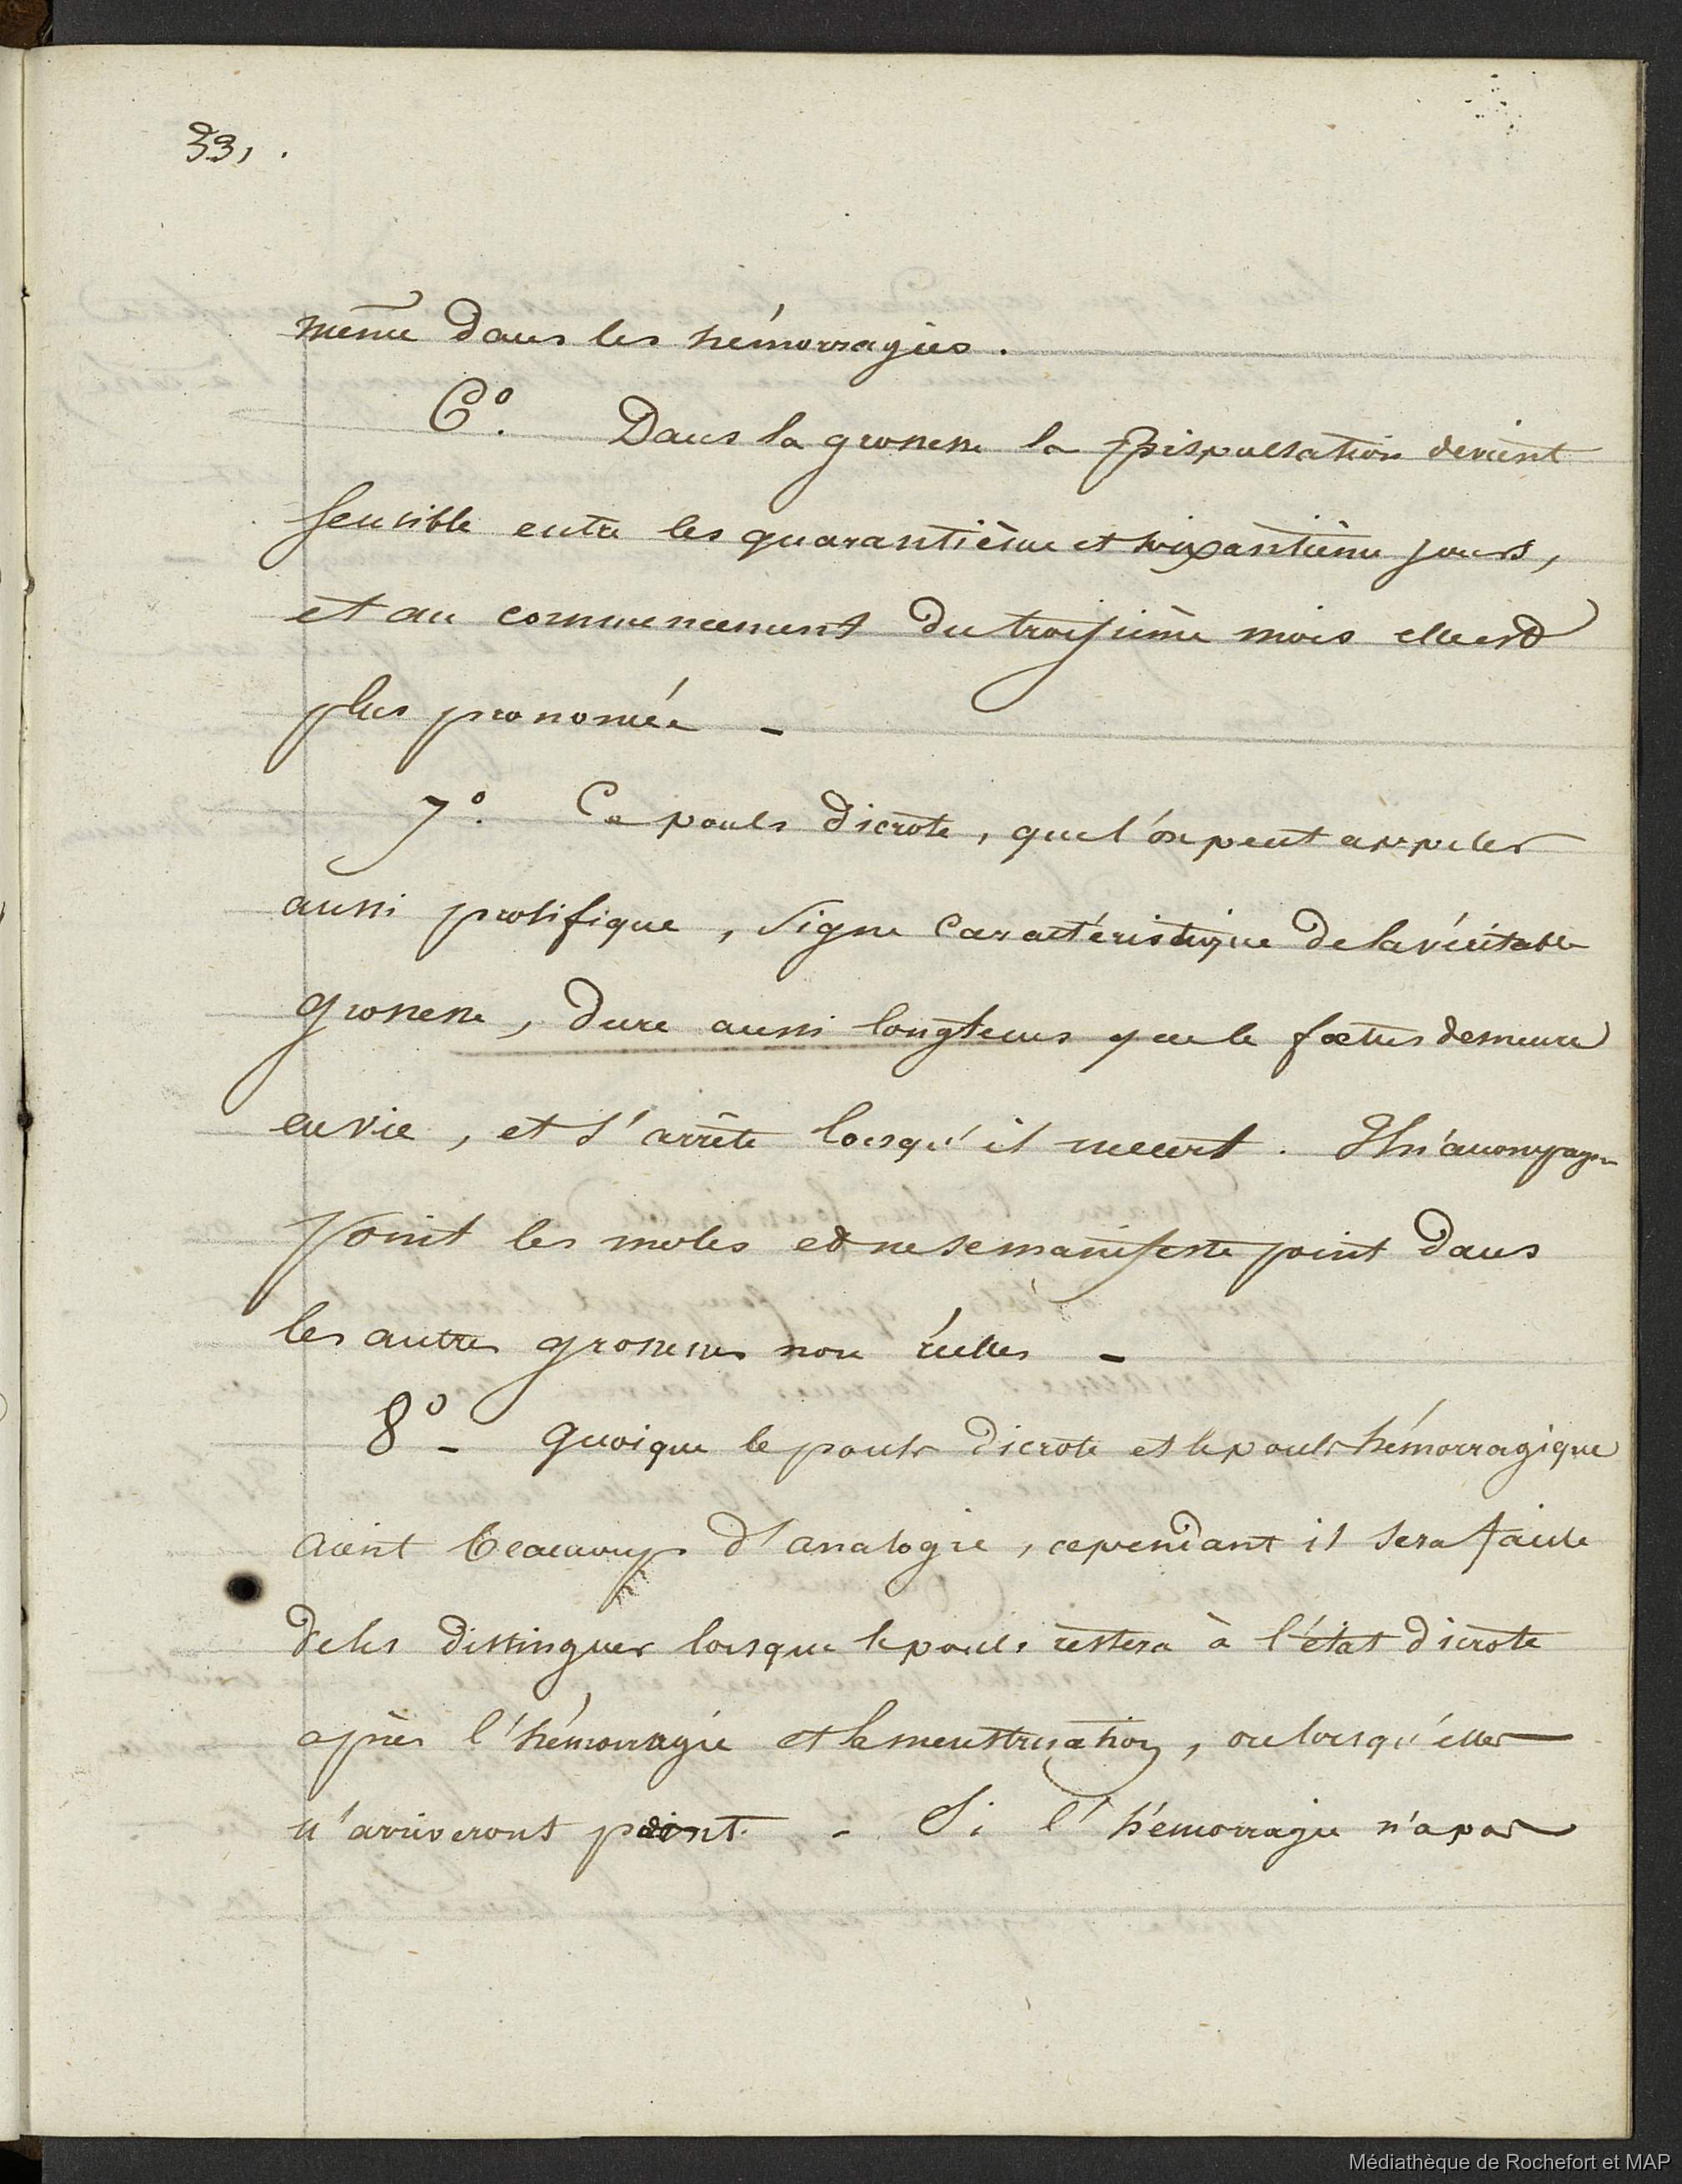 33,.
même dans les hémorragies.
6°. Dans la grossesse la bispulsation devient
sensible entre les quarantième et soixantième jours,
et au commencement du troisième mois elle est
plus prononcée -
7°. Ce pouls dicrote, que l'on peut appeler
aussi prolifique, signe caractéristique de la véritable
grossesse, dure aussi longtems que le fœtus demeure
en vie, et s'arrête lorsqu'il meurt. Il n'accompagne
point les moles et ne se manifeste point dans
les autres grossesses non réelles -
8° - Quoique le pouls dicrote et le pouls hémorragique
aient beaucoup d'analogie, cependant il sera facile
de les distinguer lorsque le pouls restera à l'état dicrote
après l'hémorragie et la menstruation, ou lorsqu'elles
n'arriveront point. - Si l'hémorragie n'a pas
Médiathèque de Rochefort et MAP